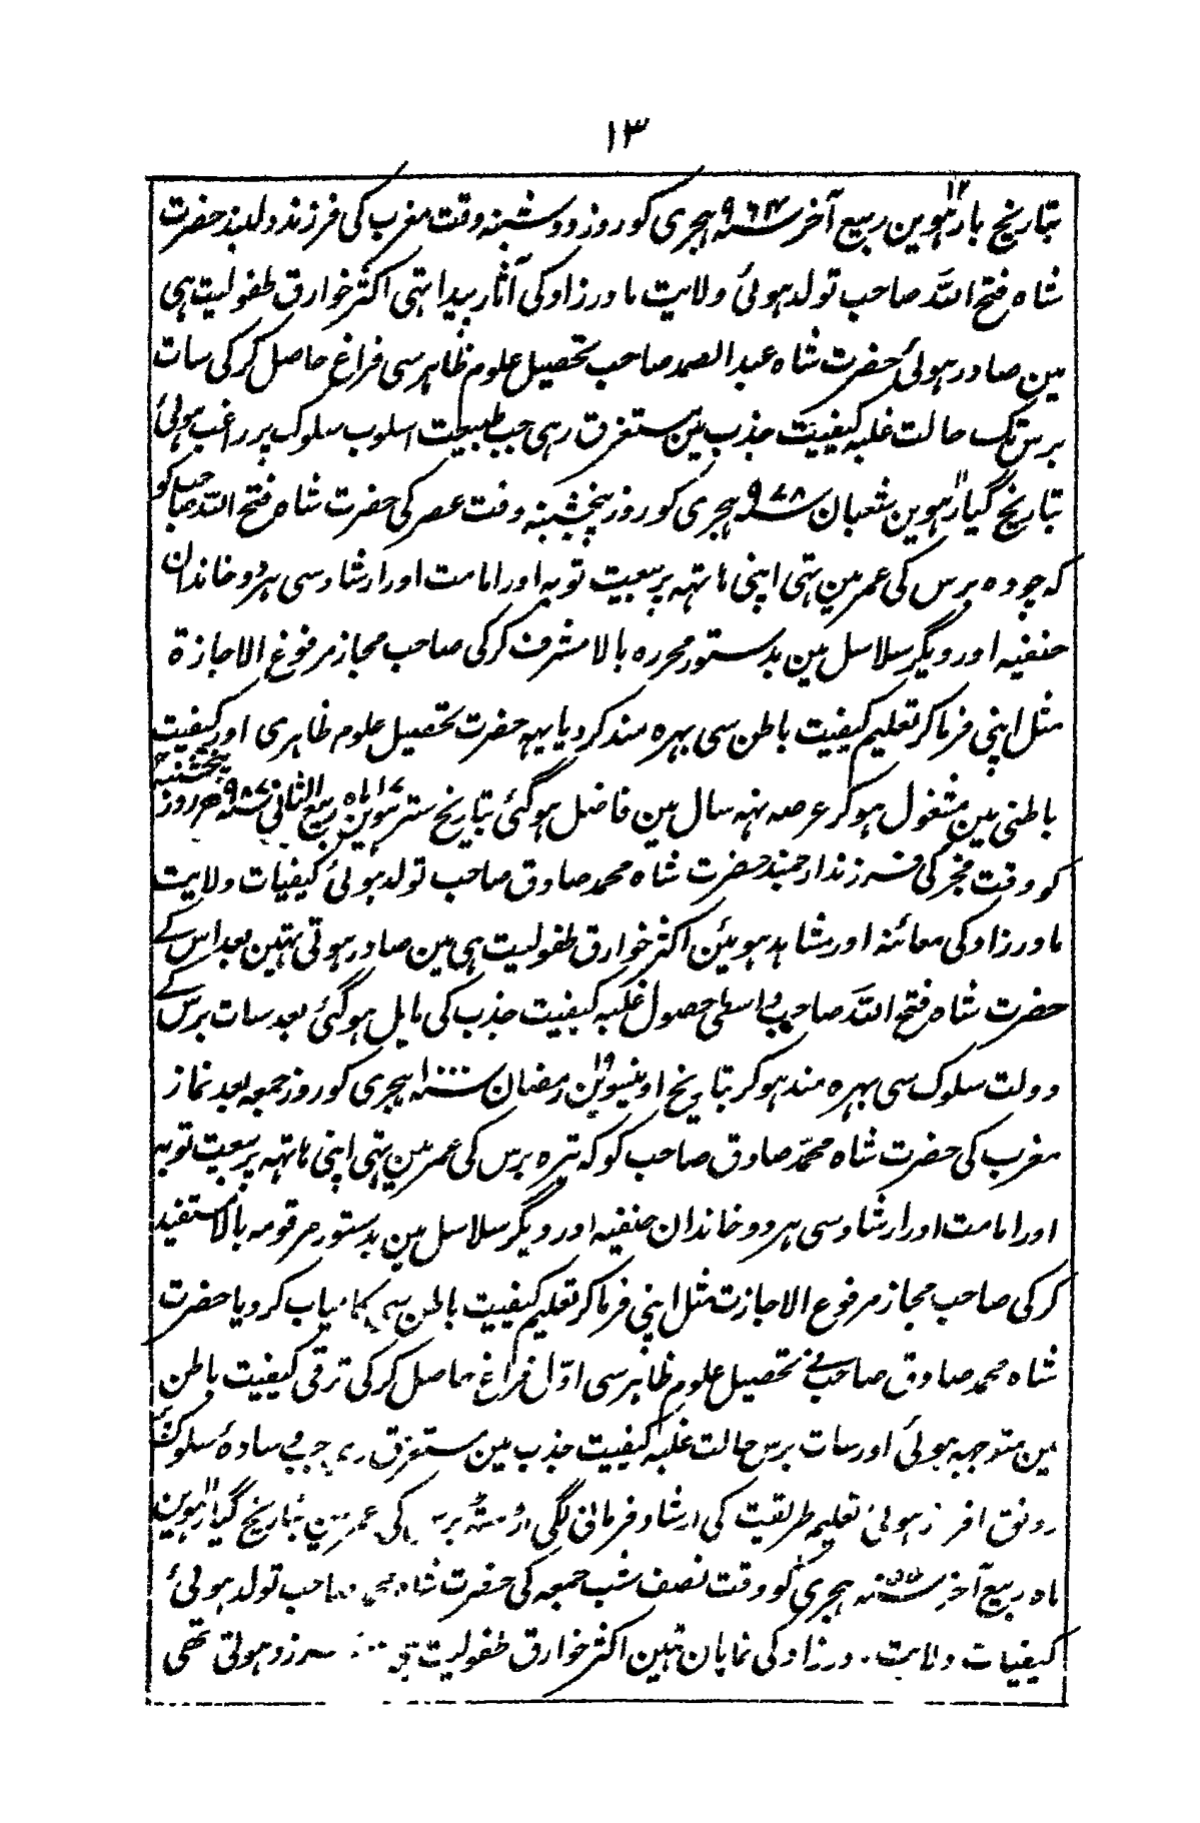 ١٣
بتاریخ بارہوین ١٢ ربیع آخر سنہ ٩٦٤ ہجری کو روز دوشنبہ وقت مغرب کی فرزند دلبند حضرت
شاہ فتح اللہ صاحب تولد ہوئی ولایت مادرزاد کی آثار پیدا تہی اکثر خوارق طفولیت ہی
مین صادر ہوئی حضرت شاہ عبدالصمد صاحب تحصیل علوم ظاہر سی فراغ حاصل کر کی سات
برس تک حالت غلبہ کیفیت جذب مین مستغرق رہی جب طبیعت اسلوب سلوک پر راغب ہوئی
بتاریخ گیارہوین ١١ شعبان سنہ ٩٧٨ ہجری کو روز پنجشنبہ وقت عصر کی حضرت شاہ فتح اللہ صاحب کو
کہ چودہ برس کی عمر مین تہی اپنی ہاتہہ پر بیعت توبہ اور امامت اور ارشاد سی ہر دو خاندان
حنفیہ اور دیگر سلاسل مین بدستور محررہ بالا مشرف کر کی صاحب مجاز مرفوع الاجازۃ
مثل اپنی فرما کر تعلیم کیفیت باطن سی بہرہ مند کر دیا یہہ حضرت تحصیل علوم ظاہری اور کیفیت
باطنی مین مشغول ہو کر عرصہ نہہ سال مین فاضل ہو گئی بتاریخ سترہوین ١٧ ماہ ربیع الثانی سنہ ٩٨٧ ھ روز پنجشنبہ
کو وقت فجر کی فرزند ارجمند حضرت شاہ محمد صادق صاحب تولد ہوئی کیفیات ولایت
مادرزاد کی معائنہ اور مشاہد ہوئین اکثر خوارق طفولیت ہی مین صادر ہوتی تہین بعد اس کے
حضرت شاہ فتح اللہ صاحب واسطی حصول غلبہ کیفیت جذب کی مایل ہو گئی بعد سات برس کے
دولت سلوک سی بہرہ مند ہو کر بتاریخ اونیسوین ١٩ رمضان سنہ ١٠٠٠ ہجری کو روز جمعہ بعد نماز
مغرب کی حضرت شاہ محمد صادق صاحب کو کہ تیرہ برس کی عمر مین تہی اپنی ہاتہہ پر بیعت توبہ
اور امامت اور ارشاد سی ہر دو خاندان حنفیہ اور دیگر سلاسل مین بدستور مرقومہ بالا مستفید
کر کی صاحب مجاز مرفوع الاجازت مثل اپنی فرما کر تعلیم کیفیت باطن سی کامیاب کر دیا حضرت
شاہ محمد صادق صاحب نے تحصیل علوم ظاہر سی اوّل فراغ حاصل کر کی ترقی کیفیت باطن
مین متوجہ ہوئی اور سات برس حالت غلبہ کیفیت جذب مین مستغرق رہی جب وسادۂ سلوک
رونق افروز ہوئی تعلیم طریقت کی ارشاد فرمانی لگی برس کی عمر مین بتاریخ گیارہوین ١١
ماہ ربیع آخر سنہ ہجری کو وقت نصف شب جمعہ کی حضرت شاہ صاحب تولد ہوئی
کیفیات ولایت مادرزاد کی نمایان تہین اکثر خوارق طفولیت سرزد ہوتی تھی